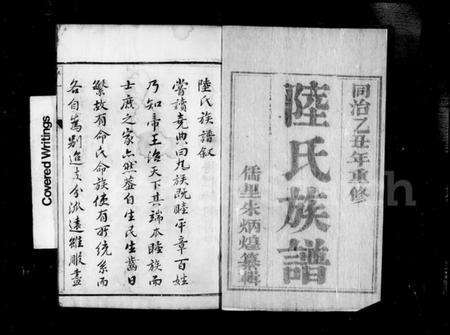 同治乙丑年重修
陸氏族譜
儒里朱炳煌纂輯
陸氏族譜叙
嘗讀堯典曰九族既睦平章百姓
乃知帝王治天下其端本睦族而
士庶之家亦然蓋自生民生齒日
繁故有命氏命族使有所統系而
各自為别迨支分派遠雖服盡
Covered Writings